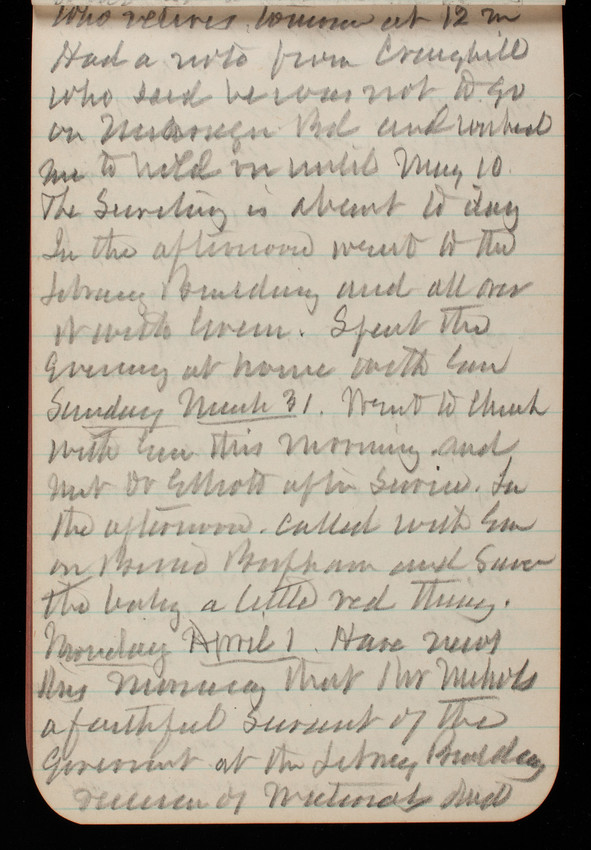 who relieves tomorrow at 12 m
Had a note from Craighill
who said he was not to go
on Nicaragua Bd and wished
me to hold on until May 10
The Secretary is absent to day
In the afternoon went to the
Library Building and all over
it with Green. Spent the
Evening at home with Em
Sunday March 31. Went to Church
with Em this morning and
met Dr Elliott after Service. In
the afternoon called with Em
on and saw
the baby a little red thing.
Monday April 1. Have news
this morning that Mr Nichols
a faithful servant of the
Government at the Library Building
receiver of materials died